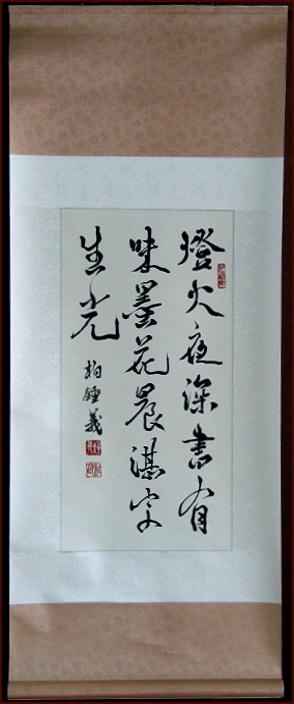 燈火夜深書有
味墨花晨湛字
生光
柏鍾義